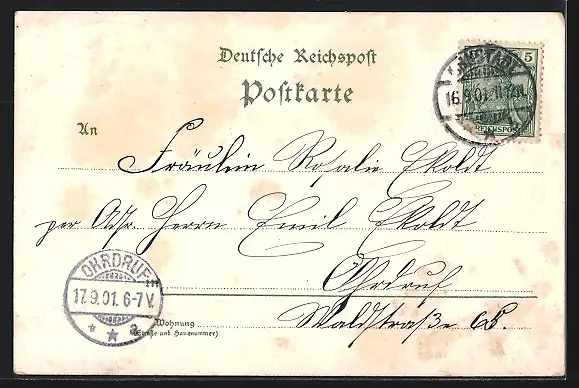 Deutsche Reichspost
Postkarte
5
REICHSPOST
16.9.01. 11-12V.
An
Fräulein Rosalie Ekoldt
per Adr. Herrn Emil Ekoldt
Ohrdruf
OHRDRUF
17.9.01. 6-7V.
* * a
Waldstraße 65.
Wohnung
(Straße und Hausnummer)